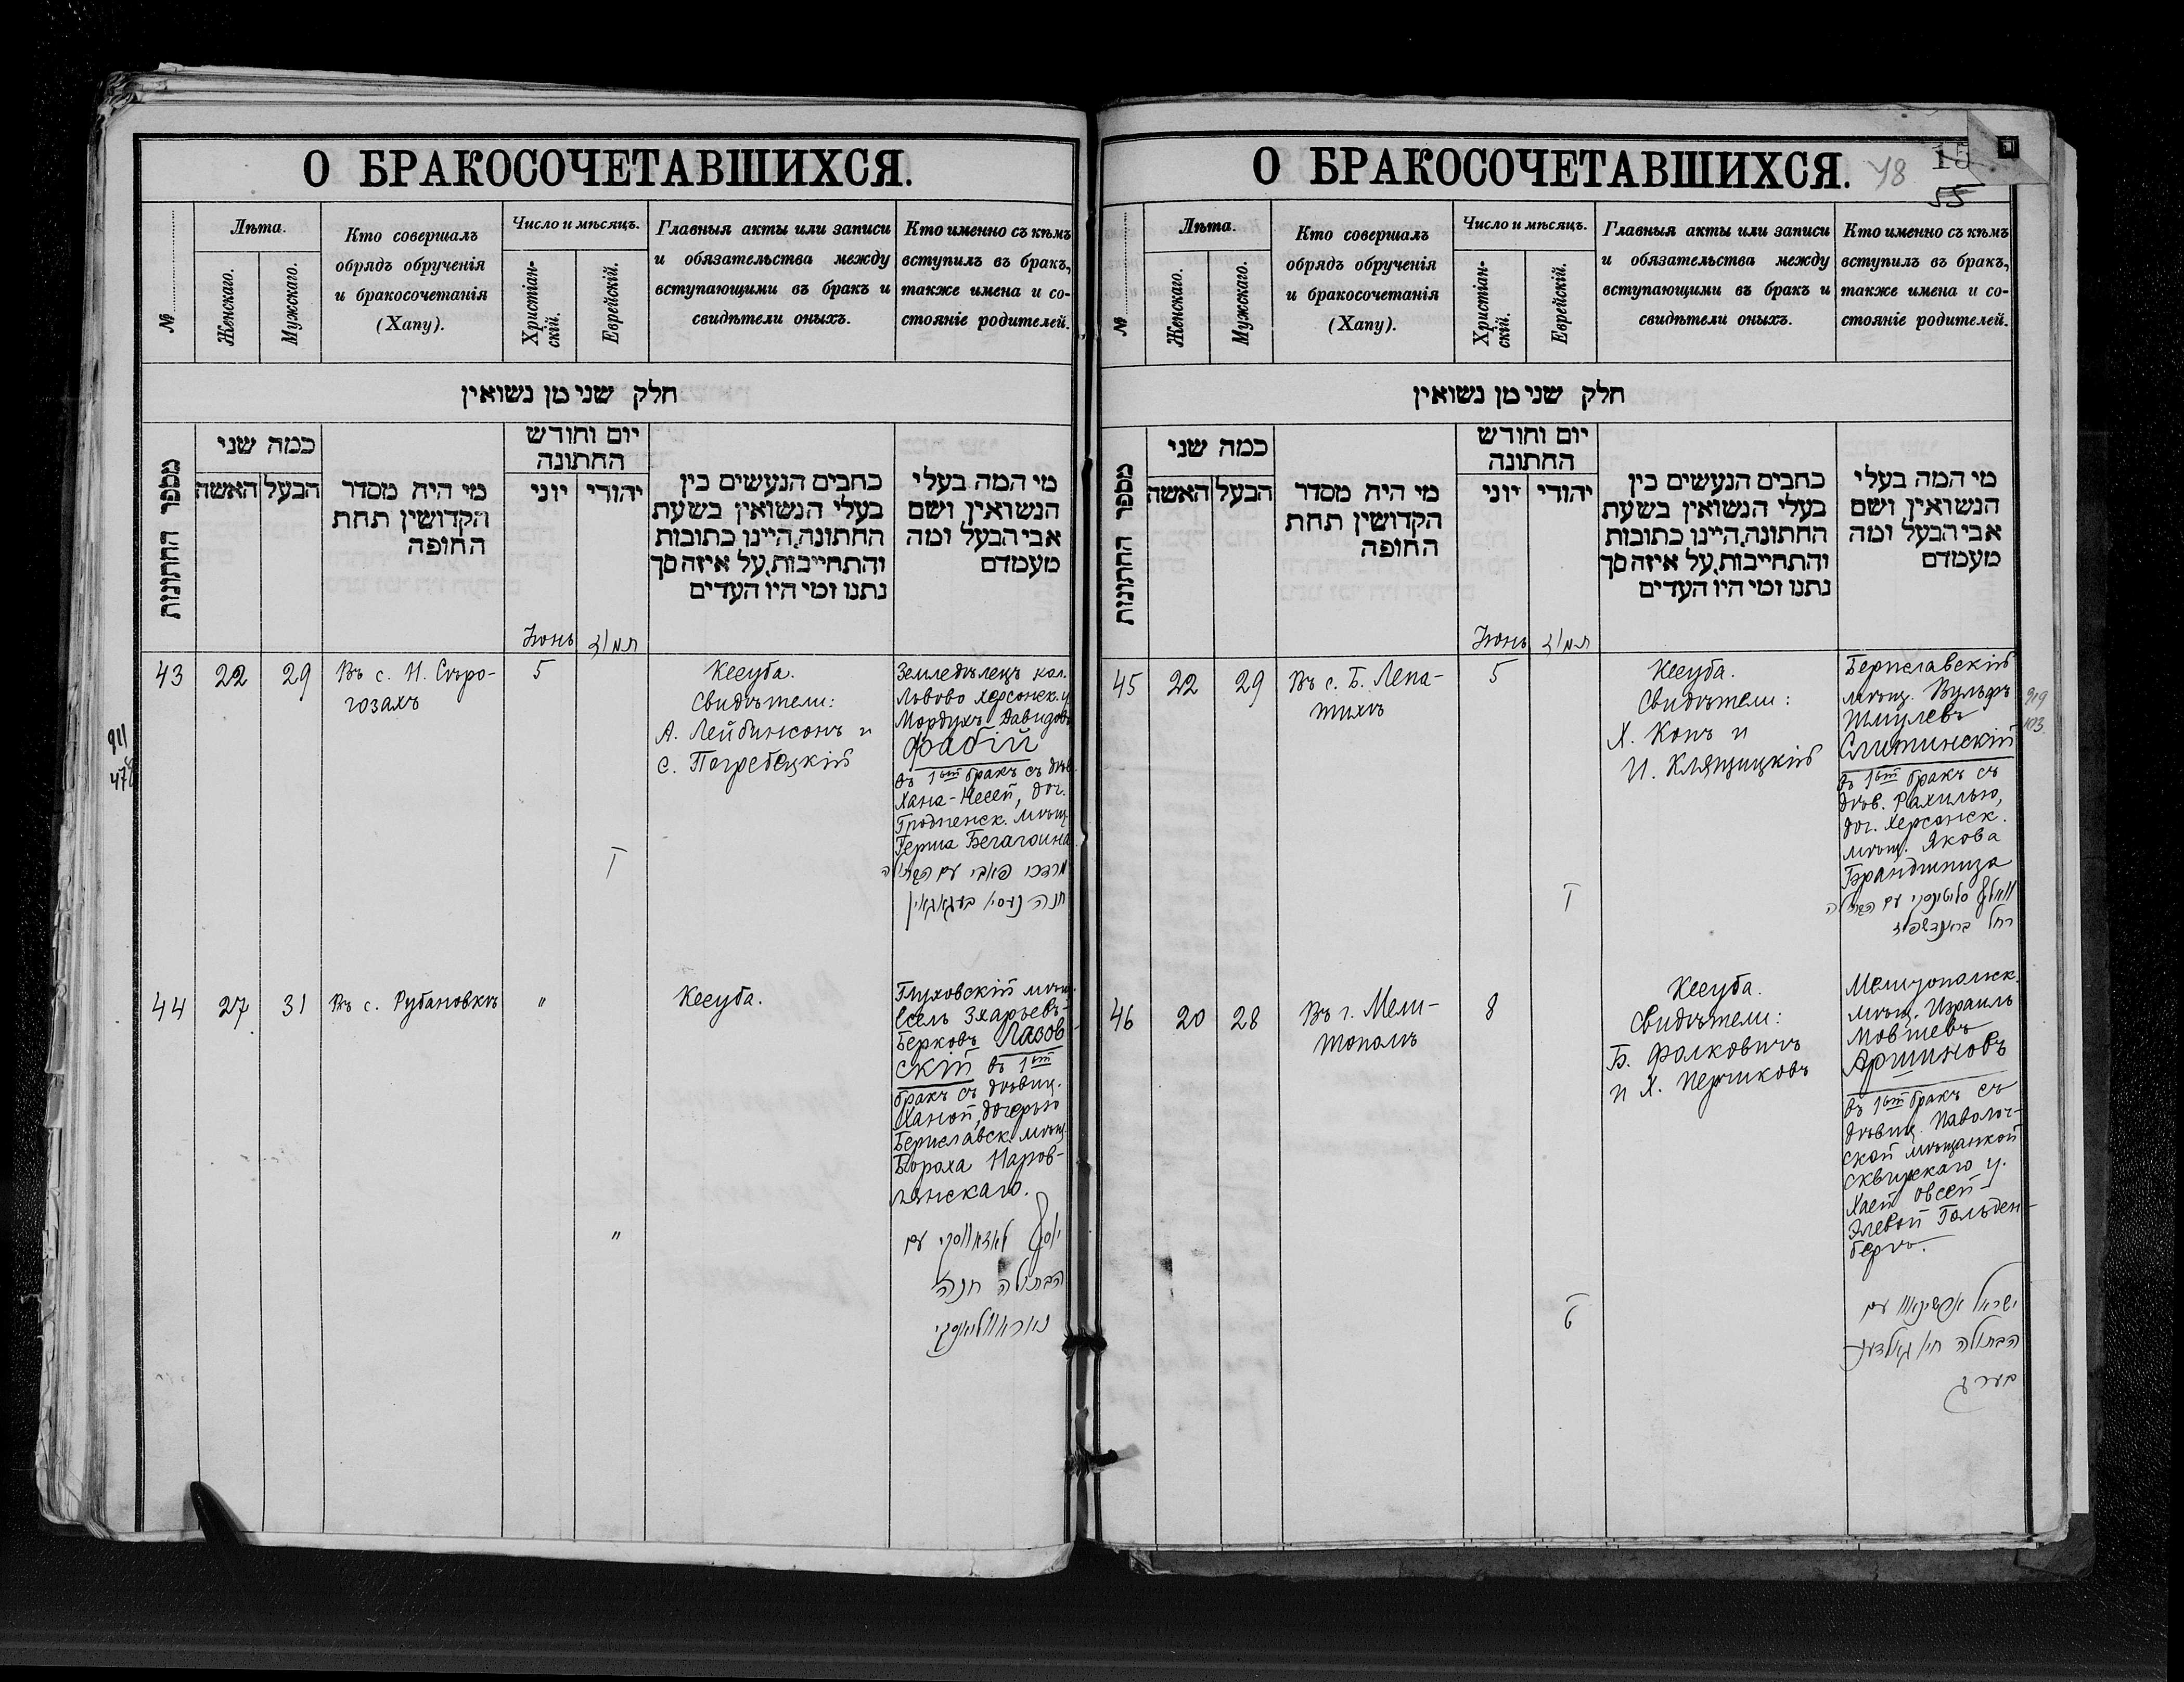 О БРАКОСОЧЕТАВШИХСЯ.
№
Лѣта.
Женскаго.
Мужскаго.
Кто совершалъ
обрядъ обрученія
и бракосочетанія
(Хапу).
Число и мѣсяцъ.
Христіан-
скій.
Еврейскій.
Главныя акты или записи
и обязательства между
вступающими въ бракъ и
свидѣтели оныхъ.
Кто именно съ кѣмъ
вступилъ въ бракъ,
также имена и со-
стояніе родителей.
חלק שני מן נשואין
מספר החתונות
כמה שני
האשה
הבעל
מי היה מסדר
הקדושין תחת
החופה
יום וחודש
החתונה
יוני
יהודי
כתבים הנעשים בין
בעלי הנשואין בשעת
החתונה, היינו כתובות
והתחייבות, על איזה סך
נתנו ומי היו העדים
מי המה בעלי
הנשואין ושם
אבי הבעל ומה
מעמדם
Іюнь
תמוז
43
22
29
Въ с. Н. Сѣро-
гозахъ
5
Кесуба.
Свидѣтели:
А. Лейбинсонъ и
С. Погребецкій
Земледѣлецъ кол.
Львово Херсонск. у.
Мордухъ Давидовъ
Фабій
въ 1ый бракъ съ дѣв.
Хана-Несей, доч.
Гродненск. мѣщ.
Герша Бегагоина
מרדכי פאבי עם הבתולה
חנה נעסי בעגאגאין
911
478
44
27
31
Въ с. Рубановкѣ
"
Кесуба.
Глуховскій мѣщ.
Берковъ Лазов-
скій въ 1ый
бракъ съ дѣвиц.
Ханой, дочерью
Бериславск. мѣщ.
Бороха Наров-
лянскаго.
"
יוסף לאזאווסקי עם
הבתולה חנה
נאראווליאנסקי
О БРАКОСОЧЕТАВШИХСЯ.
48
15
55
№
Лѣта.
Женскаго.
Мужскаго.
Кто совершалъ
обрядъ обрученія
и бракосочетанія
(Хапу).
Число и мѣсяцъ.
Христіан-
скій.
Еврейскій.
Главныя акты или записи
и обязательства между
вступающими въ бракъ и
свидѣтели оныхъ.
Кто именно съ кѣмъ
вступилъ въ бракъ,
также имена и со-
стояніе родителей.
חלק שני מן נשואין
מספר החתונות
כמה שני
האשה
הבעל
מי היה מסדר
הקדושין תחת
החופה
יום וחודש
החתונה
יוני
יהודי
כתבים הנעשים בין
בעלי הנשואין בשעת
החתונה, היינו כתובות
והתחייבות, על איזה סך
נתנו ומי היו העדים
מי המה בעלי
הנשואין ושם
אבי הבעל ומה
מעמדם
Іюнь
תמוז
45
22
29
Въ с. Б. Лепа-
тихѣ
5
Кесуба.
Свидѣтели:
Х. Копъ и
И. Клящицкій
Бериславскій
мѣщ. Вульфъ
Шмулевъ
Слитинскій
въ 1ый бракъ съ
дѣв. Рахилью,
доч. Херсонск.
мѣщ. Якова
Брандшпиза
וואלף סליטינסקי עם הבתולה
רחל בראנדשפיז
919
103
46
20
28
Въ г. Мели-
тополѣ
8
Кесуба.
Свидѣтели:
Б. Фалковичъ
и Х. Перчиковъ
Мелитопольск.
мѣщ. Израиль
Мовшевъ
Аршиновъ
въ 1ый бракъ съ
дѣвиц. Паволоч-
ской мѣщанкой
Сквирскаго у.
Хаей Овсей-
Элевой Гольден-
бергъ.
ישראל ארשינאוו עם
הבתולה חיה גאלדענ
בערג